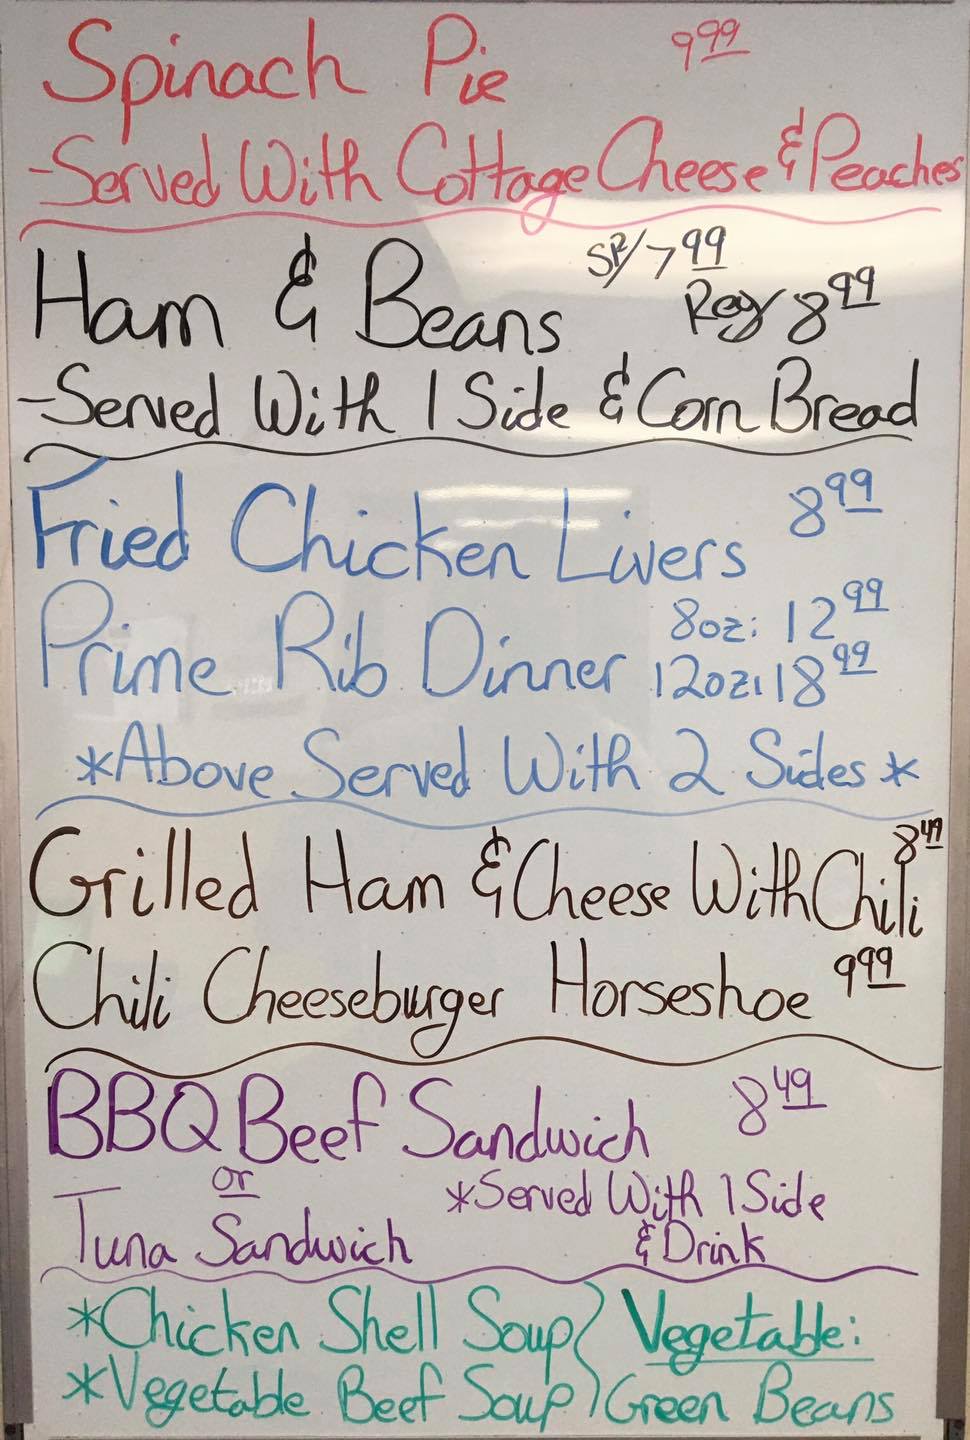 Spinach Pie 9 99
-Served With Cottage Cheese & Peaches
Ham & Beans SR/7 99
Reg 8 99
-Served With 1 Side & Corn Bread
Fried Chicken Livers 8 99
Prime Rib Dinner 8oz: 12 99
12oz: 18 99
*Above Served With 2 Sides*
Grilled Ham & Cheese With Chili 8 49
Chili Cheeseburger Horseshoe 9 99
BBQ Beef Sandwich 8 49
or
Tuna Sandwich
*Served With 1 Side
& Drink
*Chicken Shell Soup
*Vegetable Beef Soup
Vegetable:
Green Beans